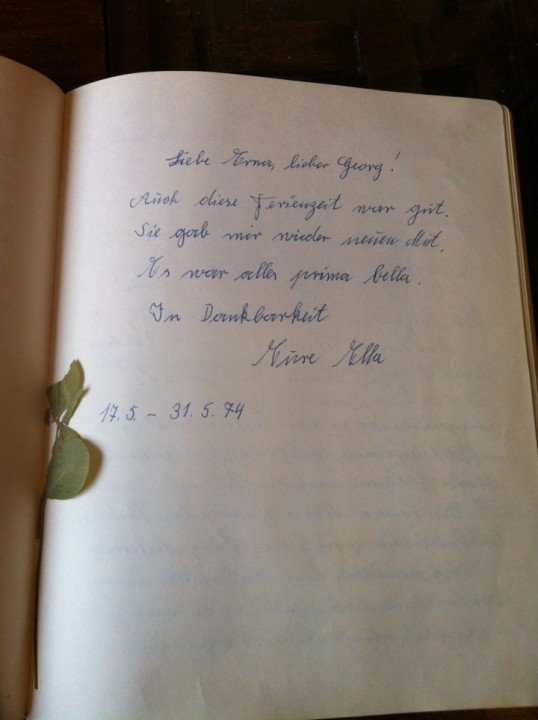 Liebe Erna, lieber Georg!
Auch diese Ferienzeit war gut.
Sie gab mir wieder neuen Mut.
Es war alles prima bella.
In Dankbarkeit
Eure Ella
17.5. – 31.5.74